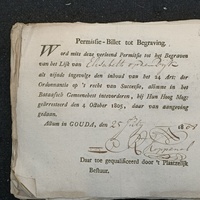 Permissie-Billet tot Begraving.
Word mits deze verleend Permissie tot het Begraven
van het Lijk van Elisabeth
als zijnde ingevolge den inhoud van het 24 Art: der
Ordonnantie op 't recht van Successie, alomme in het
Bataafsch Gemeenebest intevorderen, bij Hun Hoog Mog:
gearresteerd den 4 October 1805, daar van aangeving
gedaan.
Actum in GOUDA, den 25 July 180
Daar toe gequalificeerd door 't Plaatselijk
Bestuur.